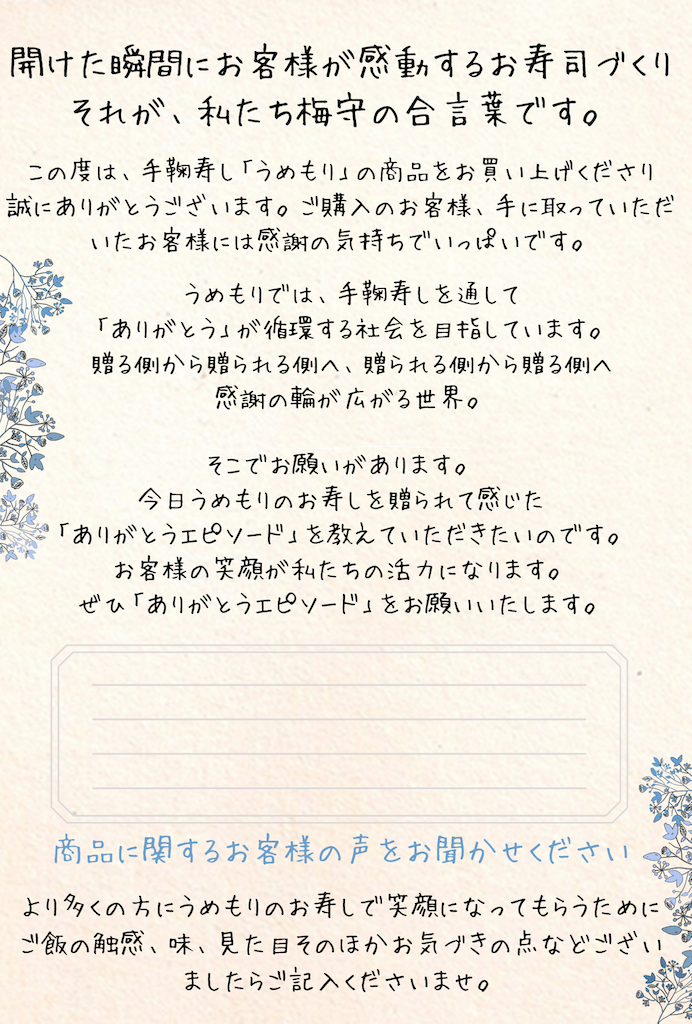 開けた瞬間にお客様が感動するお寿司づくり
それが、私たち梅守の合言葉です。
この度は、手鞠寿し「うめもり」の商品をお買い上げくださり
誠にありがとうございます。ご購入のお客様、手に取っていただ
いたお客様には感謝の気持ちでいっぱいです。
うめもりでは、手鞠寿しを通して
「ありがとう」が循環する社会を目指しています。
贈る側から贈られる側へ、贈られる側から贈る側へ
感謝の輪が広がる世界。
そこでお願いがあります。
今日うめもりのお寿しを贈られて感じた
「ありがとうエピソード」を教えていただきたいのです。
お客様の笑顔が私たちの活力になります。
ぜひ「ありがとうエピソード」をお願いいたします。
商品に関するお客様の声をお聞かせください
より多くの方にうめもりのお寿しで笑顔になってもらうために
ご飯の触感、味、見た目そのほかお気づきの点などござい
ましたらご記入くださいませ。